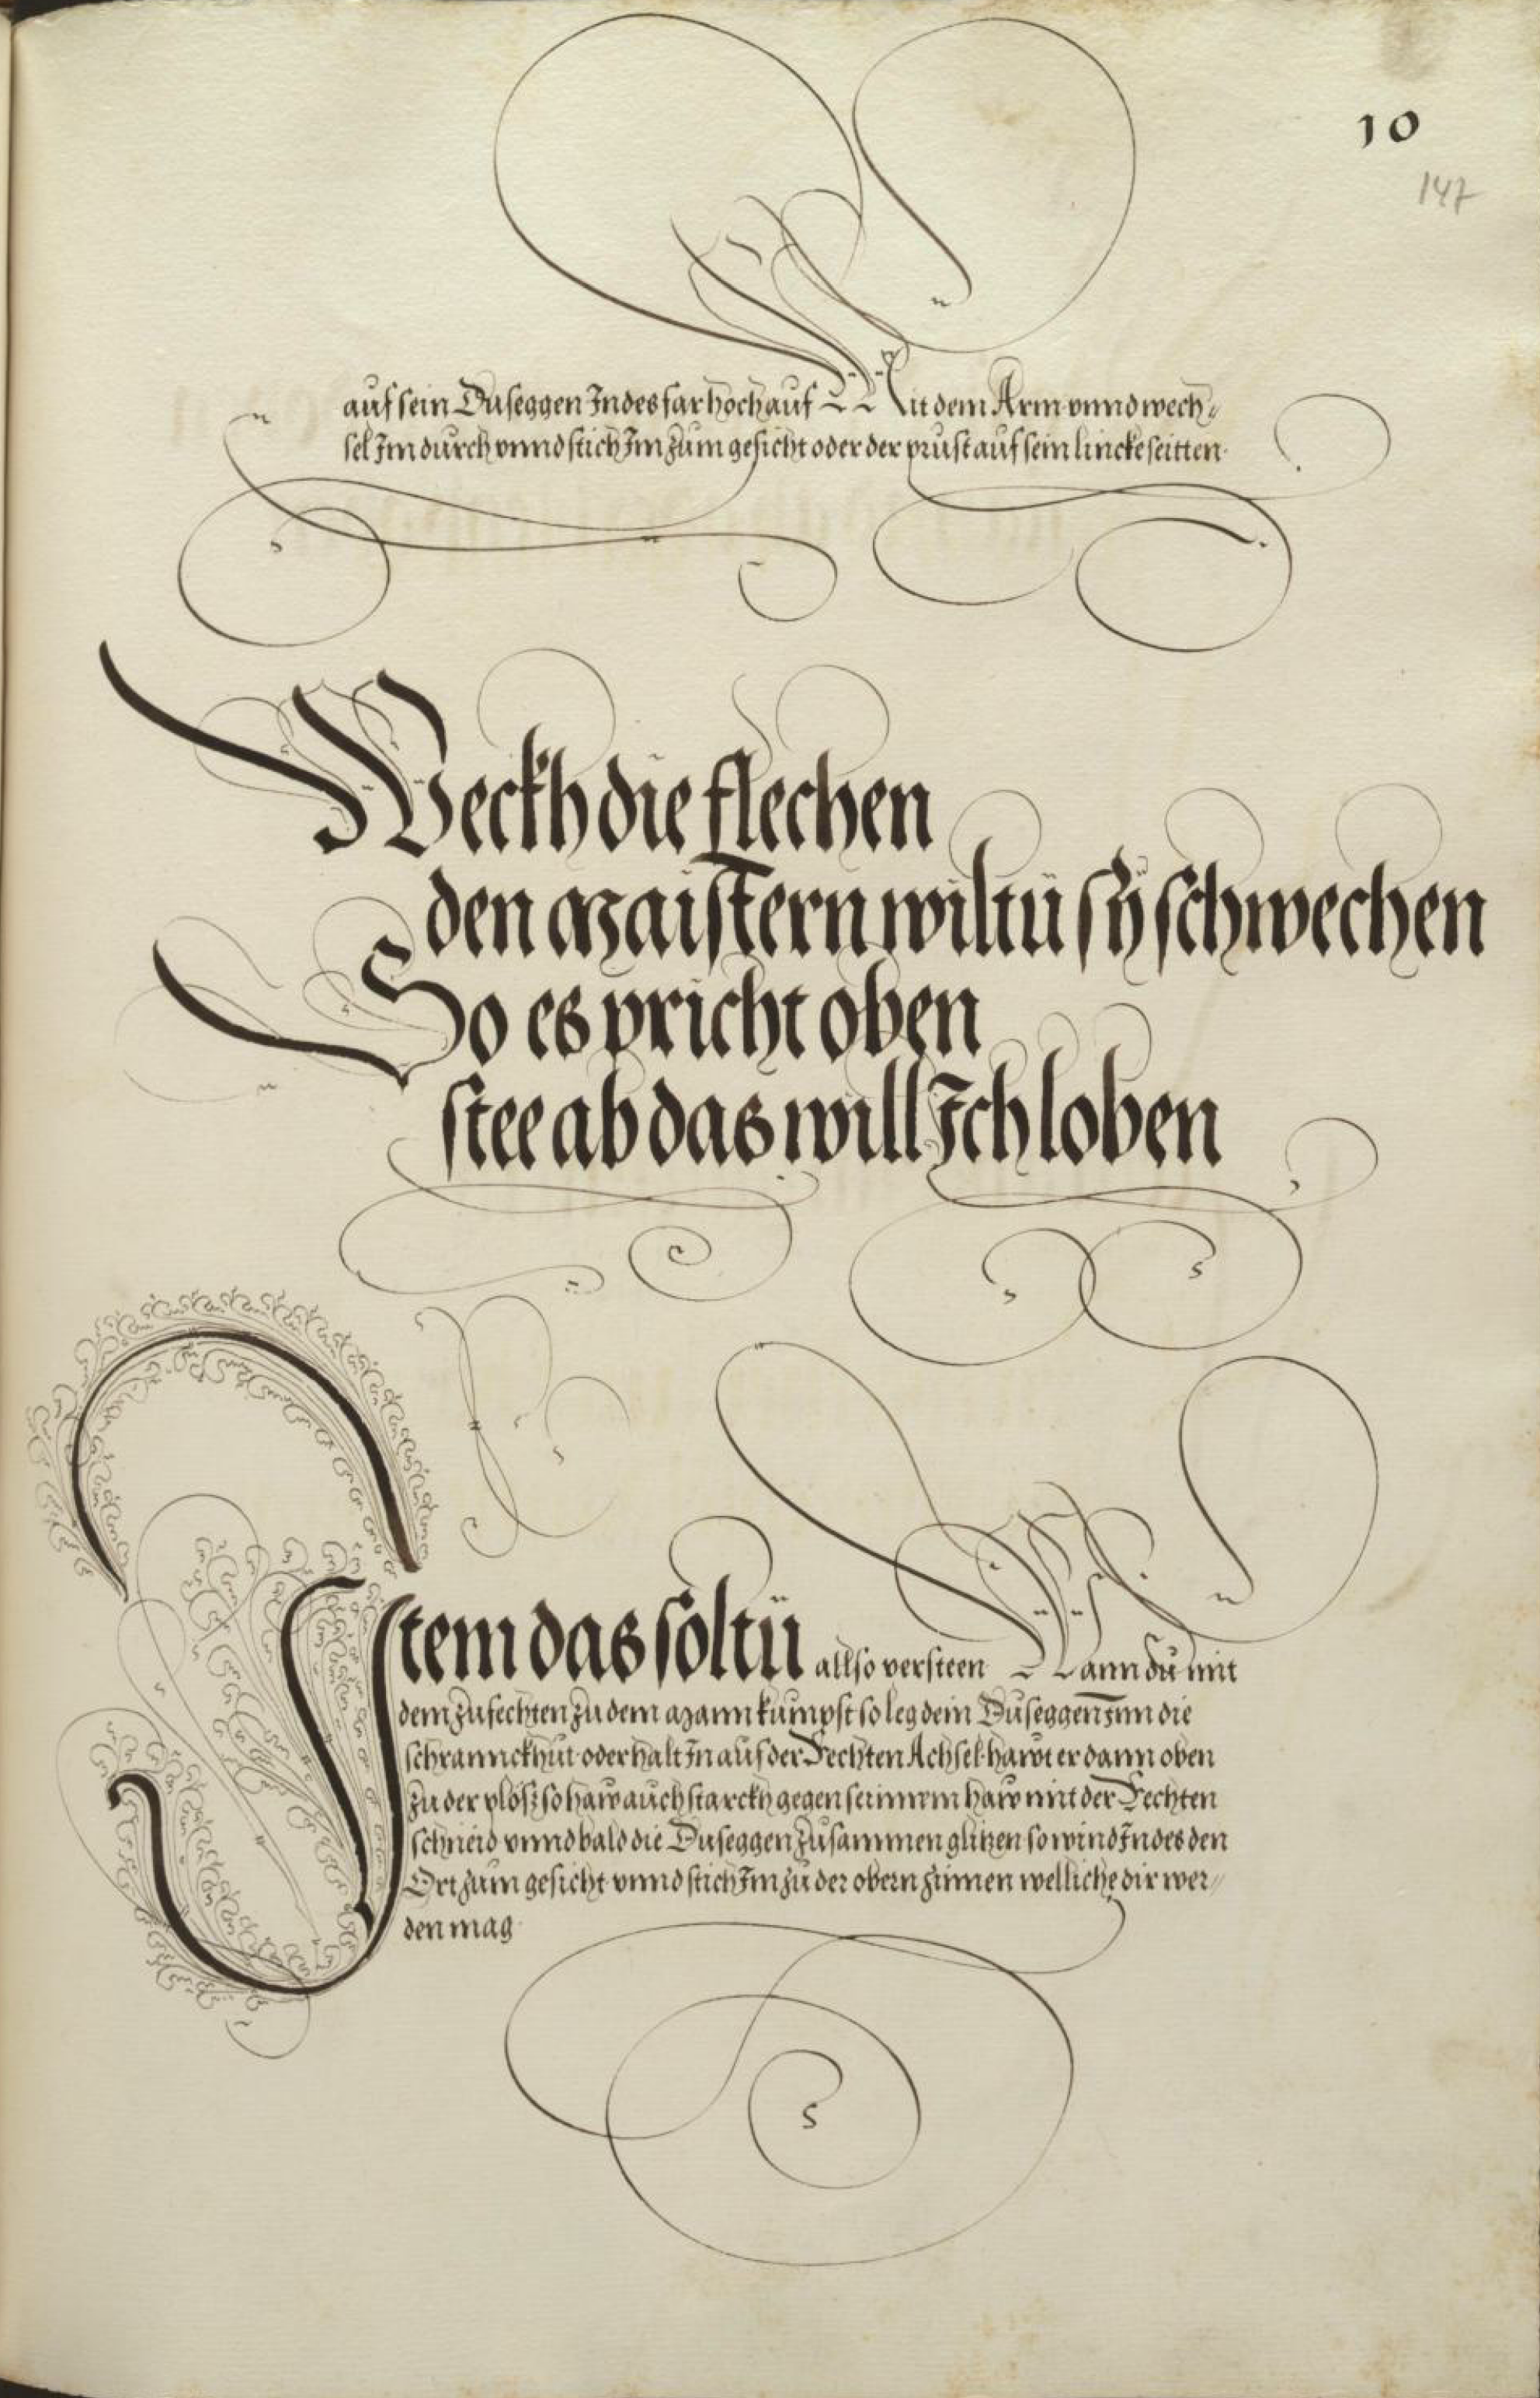 10
147
auf sein Duseggen Indes far hoch auf Mit dem Arm vnnd wech⸗
sel Im durch vnnd stich Im zum gesicht oder der prust auf sein lincke seitten
Weckh die flechen
den Maistern wiltü sÿ schwechen
So es pricht oben
stee ab das will Ich loben
Item das soltü allso versteen Wann du mit
dem zufechten zu dem Mann kumpst so leg dein Duseggen Inn die
schrannckhut oder halt In auf der Rechten Achsel hawt er dann oben
zu der plösz so haw auch starckh gegen seinnem haw mit der Rechten
schneid vnnd bald die Duseggen zusammen glitzen so wind Indes den
Ort zum gesicht vnnd stich Im zu der obern zinnen welliche dir wer⸗
den mag